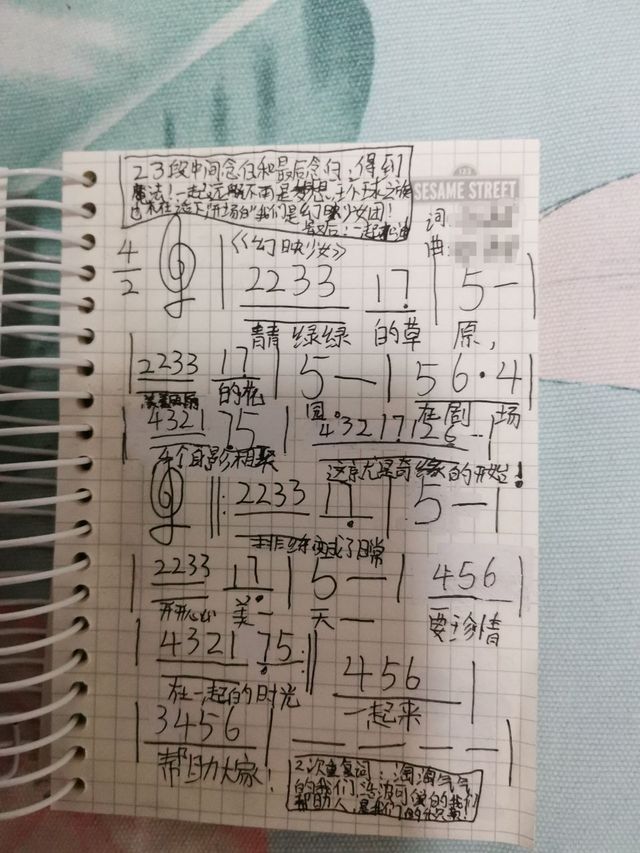 23段中间念白和最后念白:得到
魔法!一起 不用是梦想
"我们是幻映少女团!
最后:一起加油
SESAME STREET
词:
曲:
4/2 《幻映少女》
| 2233 17 | 5 — |
青青绿绿 的草 原,
| 2233 17 | 5 — | 56·4 |
的花 园。 在剧场
4321 75 | 43217126 — |
4个身影相聚 这就是奇缘的开始!
||: 2233 17 | 5 — |
排练变成了日常
| 2233 17 | 5 — | 456 |
开开心心 美一 天一 要珍惜
| 4321 75 :|| 456 |
在一起的时光 一起来
| 3456 | — — — — |
帮助大家!
2次重复词:淘淘气气
的我们 活泼可爱的我们
帮助人,是我们的 !